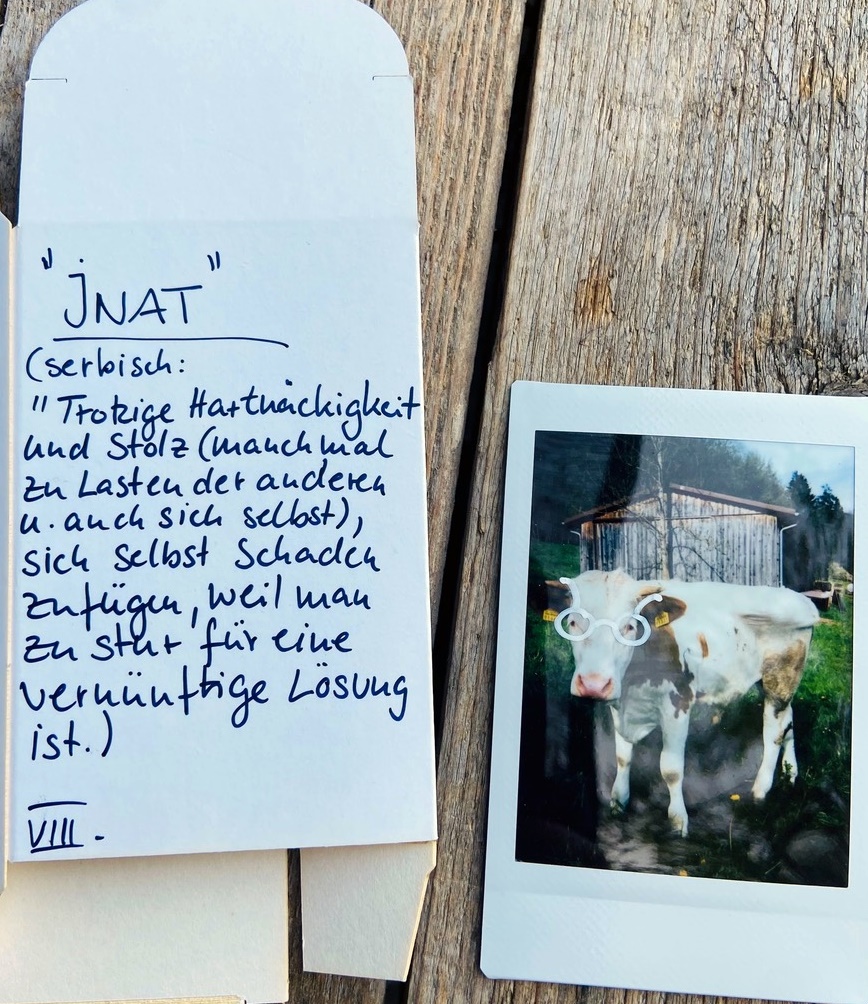 "JNAT"
(serbisch:
"Trotzige Hartnäckigkeit
und Stolz (manchmal
zu Lasten der anderen
u. auch sich selbst),
sich selbst Schaden
zufügen, weil man
zu stur für eine
vernünftige Lösung
ist.)
VIII.